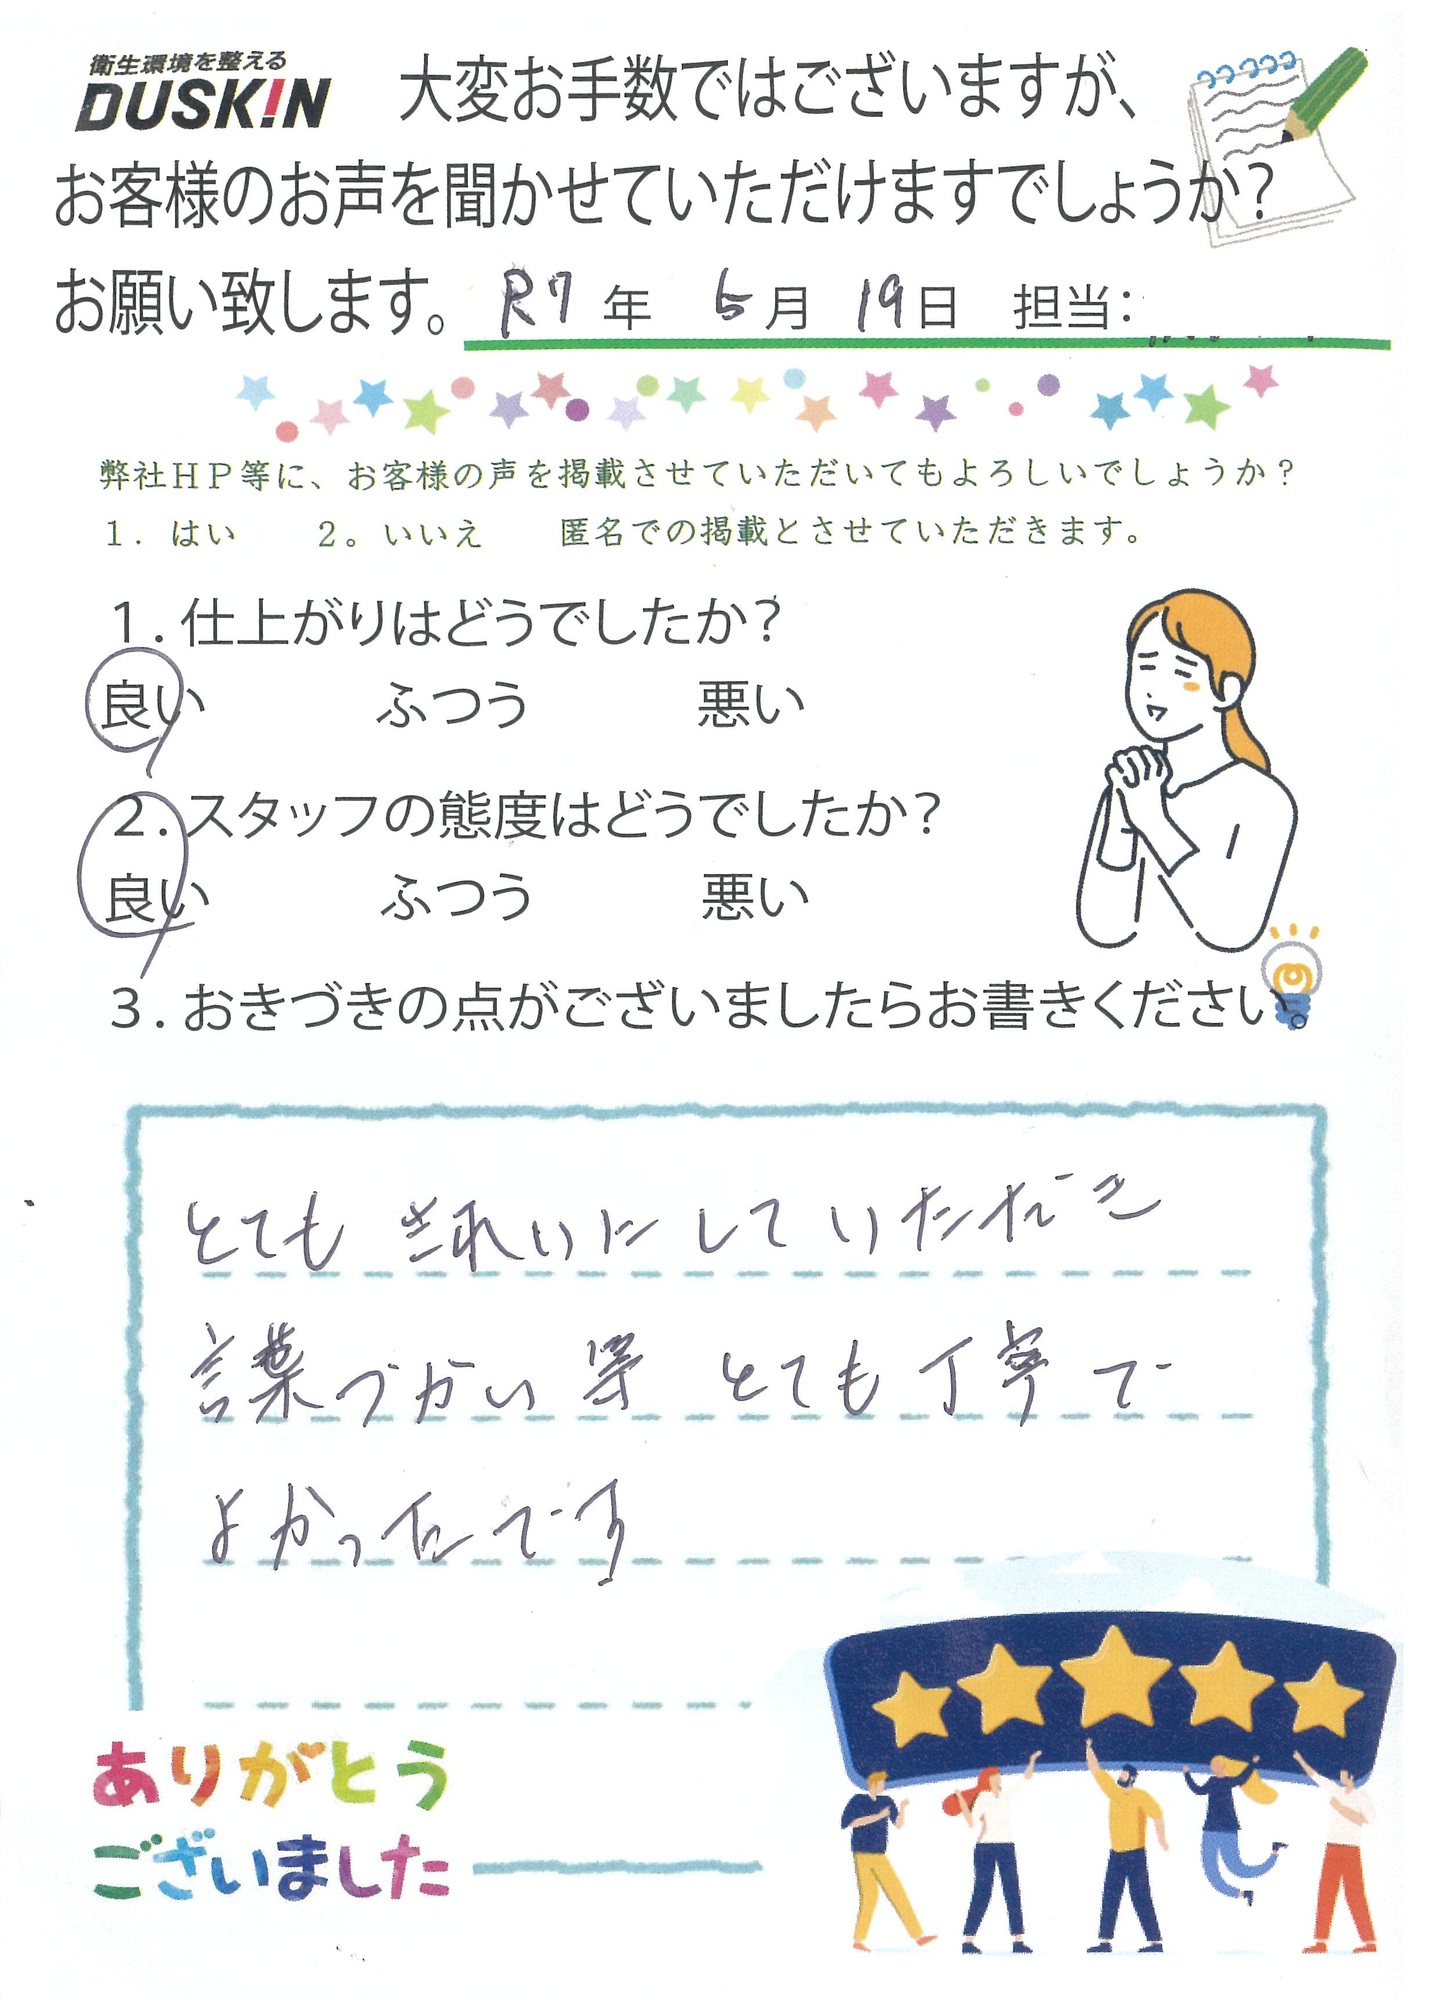 衛生環境を整える
DUSKIN
大変お手数ではございますが、
お客様のお声を聞かせていただけますでしょうか？
お願い致します。 R7年 5月 19日 担当：
弊社ＨＰ等に、お客様の声を掲載させていただいてもよろしいでしょうか？
１．はい ２。いいえ 匿名での掲載とさせていただきます。
１．仕上がりはどうでしたか？
良い ふつう 悪い
２．スタッフの態度はどうでしたか？
良い ふつう 悪い
３．おきづきの点がございましたらお書きください。
とても きれいに して いただき
言葉づかい 等 とても 丁寧 で
よかったです
ありがとう
ございました